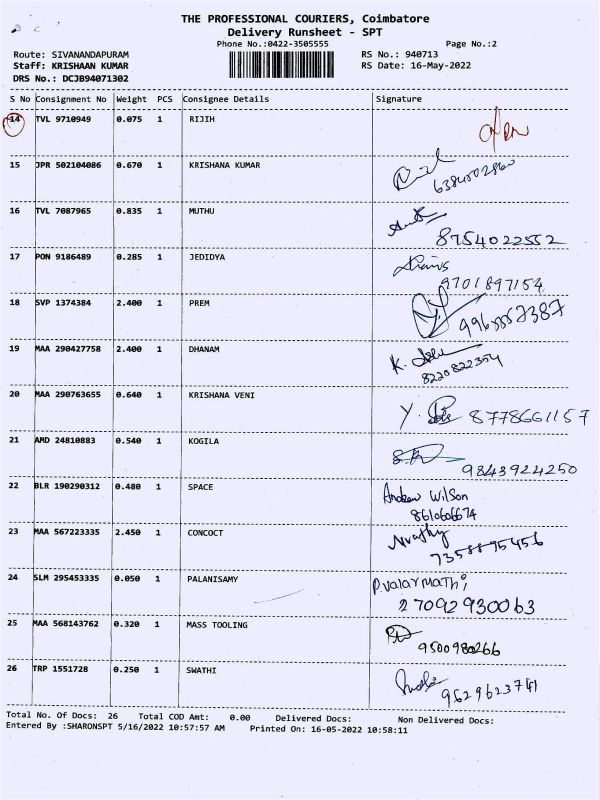 THE PROFESSIONAL COURIERS, Coimbatore
Delivery Runsheet - SPT
Phone No.:0422-3505555 Page No.:2
Route: SIVANANDAPURAM RS No.: 940713
Staff: KRISHAAN KUMAR RS Date: 16-May-2022
DRS No.: DCJB94071302
S No Consignment No Weight PCS Consignee Details Signature
14 TVL 9710949 0.075 1 RIJIH
15 JPR 502104086 0.670 1 KRISHANA KUMAR
16 TVL 7087965 0.835 1 MUTHU
8754022552
17 PON 9186489 0.285 1 JEDIDYA
9701897154
18 SVP 1374384 2.400 1 PREM
19 MAA 290427758 2.400 1 DHANAM
8220822354
20 MAA 290763655 0.640 1 KRISHANA VENI
8778661157
21 AMD 24810883 0.540 1 KOGILA
9843924250
22 BLR 190290312 0.480 1 SPACE Andrew Wilson
8610606674
23 MAA 567223335 2.450 1 CONCOCT
7358895456
24 SLM 295453335 0.050 1 PALANISAMY P.valarmathi
25 MAA 568143762 0.320 1 MASS TOOLING
9500980266
26 TRP 1551728 0.250 1 SWATHI
9629623741
Total No. Of Docs: 26 Total COD Amt: 0.00 Delivered Docs: Non Delivered Docs:
Entered By :SHARONSPT 5/16/2022 10:57:57 AM Printed On: 16-05-2022 10:58:11